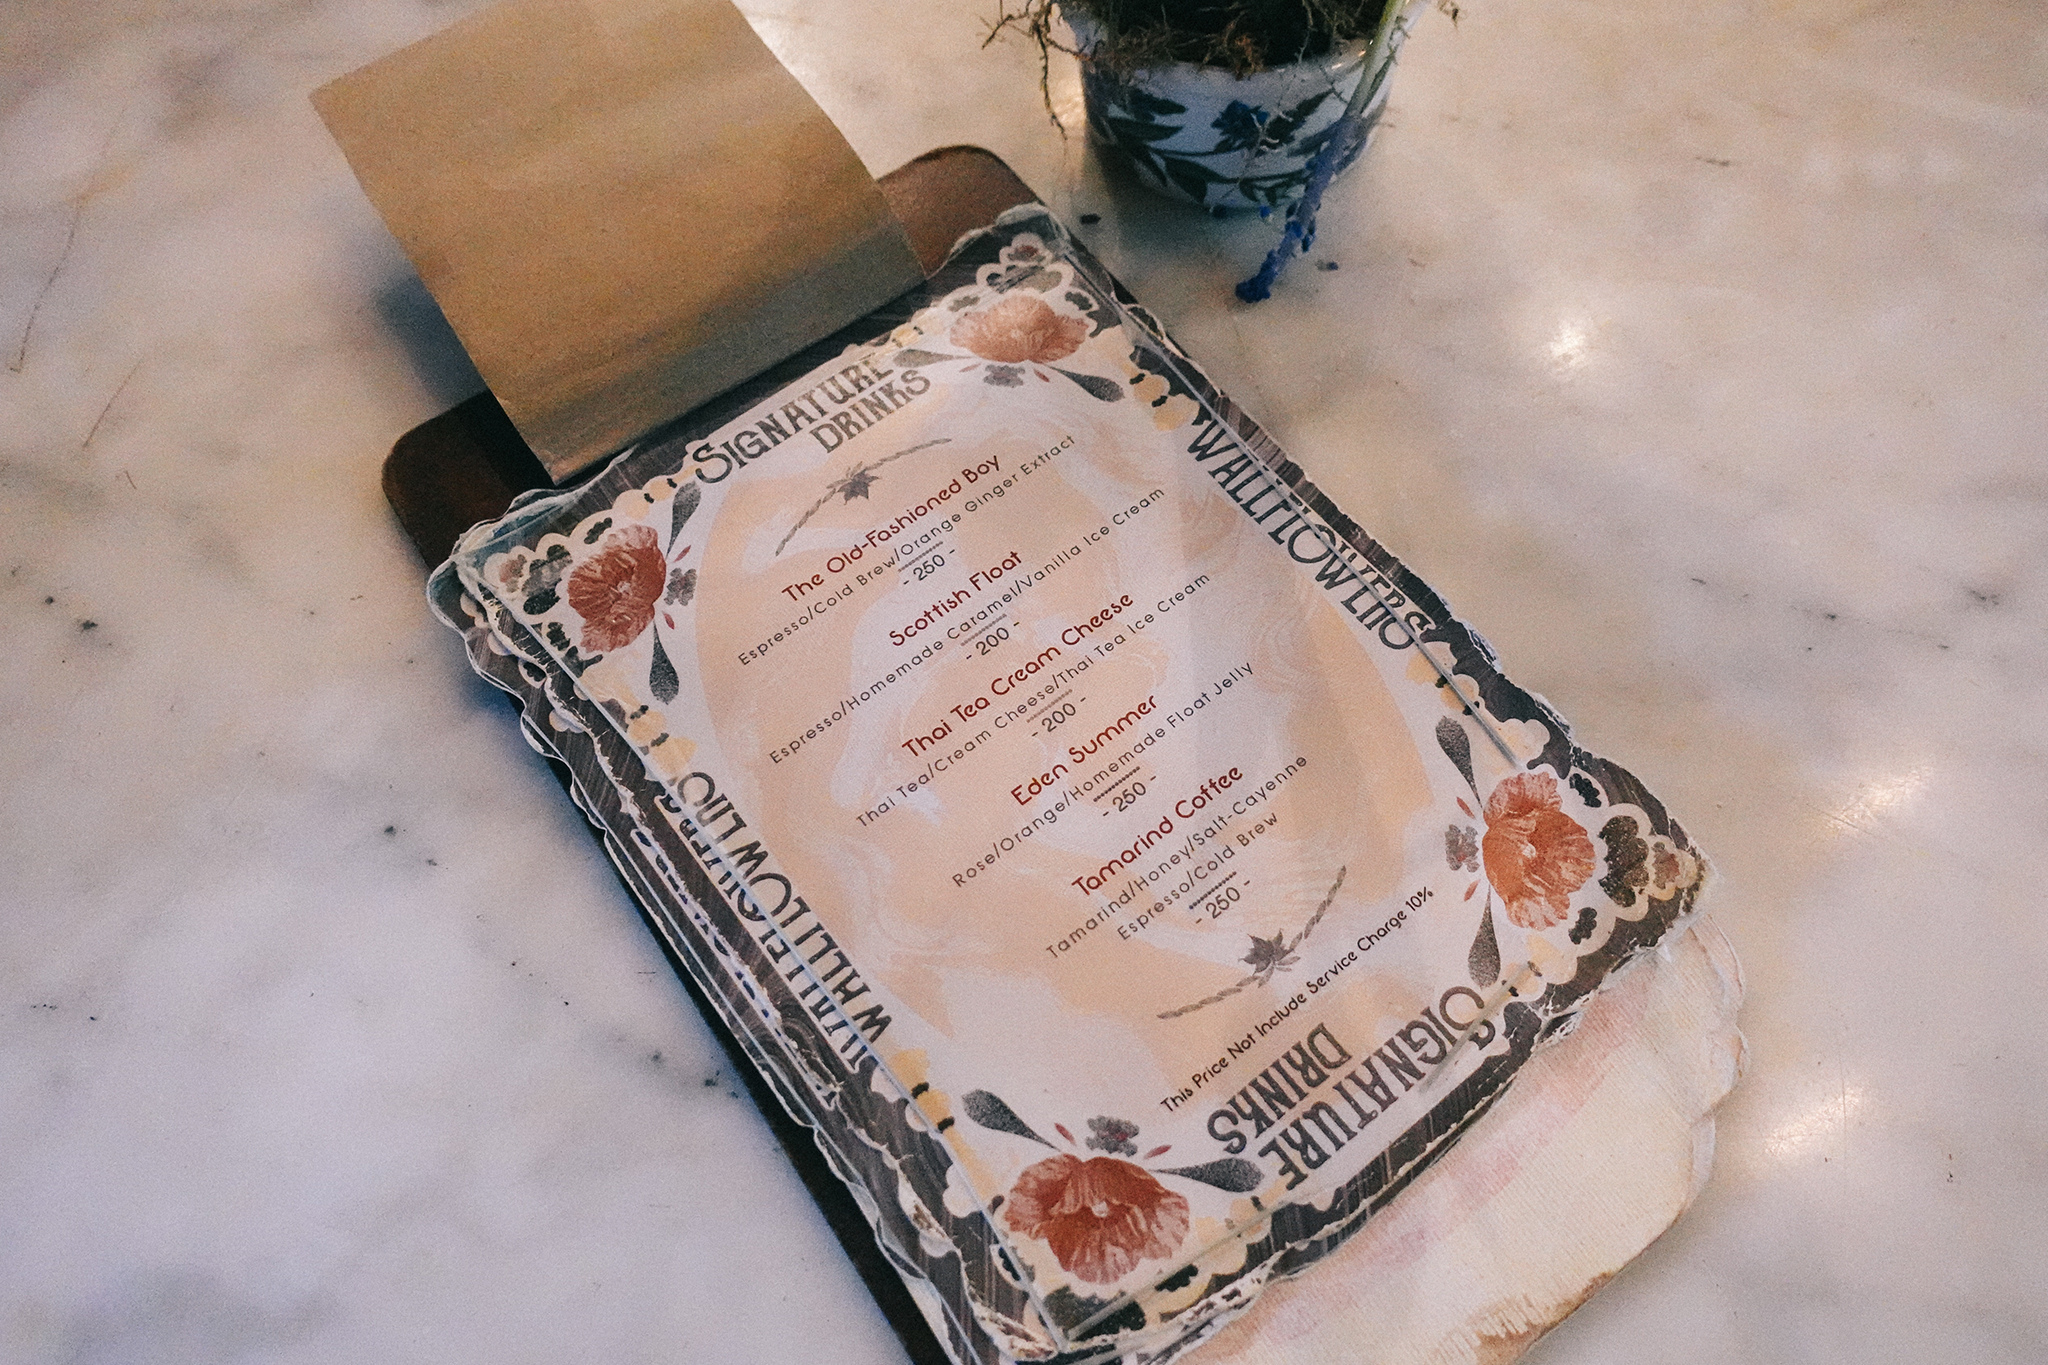 SIGNATURE
DRINKS
The Old-Fashioned Boy
Espresso/Cold Brew/Orange Ginger Extract
- 250 -
Scottish Float
Espresso/Homemade Caramel/Vanilla Ice Cream
- 200 -
Thai Tea Cream Cheese
Thai Tea/Cream Cheese/Thai Tea Ice Cream
- 200 -
Eden Summer
Rose/Orange/Homemade Float Jelly
- 250 -
Tamarind Coffee
Tamarind/Honey/Salt-Cayenne
Espresso/Cold Brew
- 250 -
This Price Not Include Service Charge 10%
WALLFLOWERS
WALLFLOWERS
SIGNATURE
DRINKS